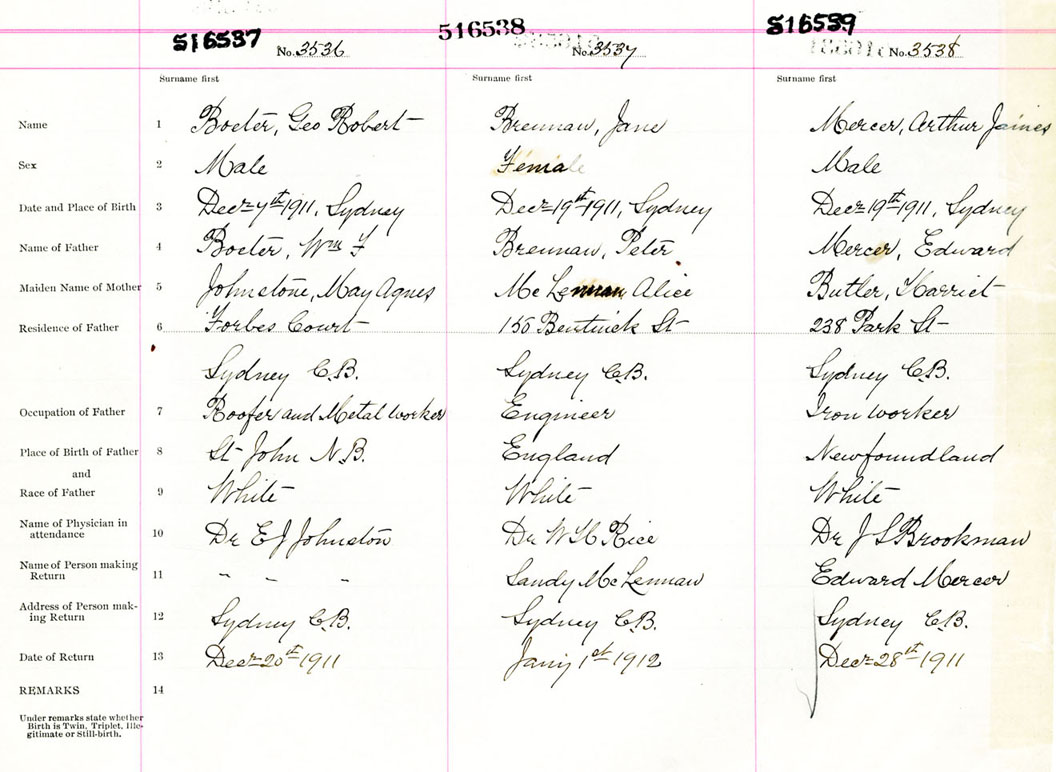 516537 516538 516539
No. 3536 No. 3537 No. 3538
Surname first Surname first Surname first
Name 1 Boeter, Geo Robert Brennan, Jane Mercer, Arthur James
Sex 2 Male Female Male
Date and Place of Birth 3 Decr 7th 1911, Sydney Decr 19th 1911, Sydney Decr 19th 1911, Sydney
Name of Father 4 Boeter, Wm F Brennan, Peter Mercer, Edward
Maiden Name of Mother 5 Johnstone, May Agnes Mc Lennan, Alice Butler, Harriet
Residence of Father 6 Forbes Court 150 Bentinck St 238 Park St
Sydney C.B. Sydney C.B. Sydney C.B.
Occupation of Father 7 Roofer and Metal worker Engineer Iron worker
Place of Birth of Father 8 St John N.B. England Newfoundland
and
Race of Father 9 White White White
Name of Physician in
attendance 10 Dr E J Johnston Dr W H Rice Dr J S Brookman
Name of Person making
Return 11 " " " Sandy Mc Lennan Edward Mercer
Address of Person mak-
ing Return 12 Sydney C.B. Sydney C.B. Sydney C.B.
Date of Return 13 Decr 20th 1911 Jany 1st 1912 Decr 28th 1911
REMARKS 14
Under remarks state whether
Birth is Twin, Triplet, Ille-
gitimate or Still-birth.